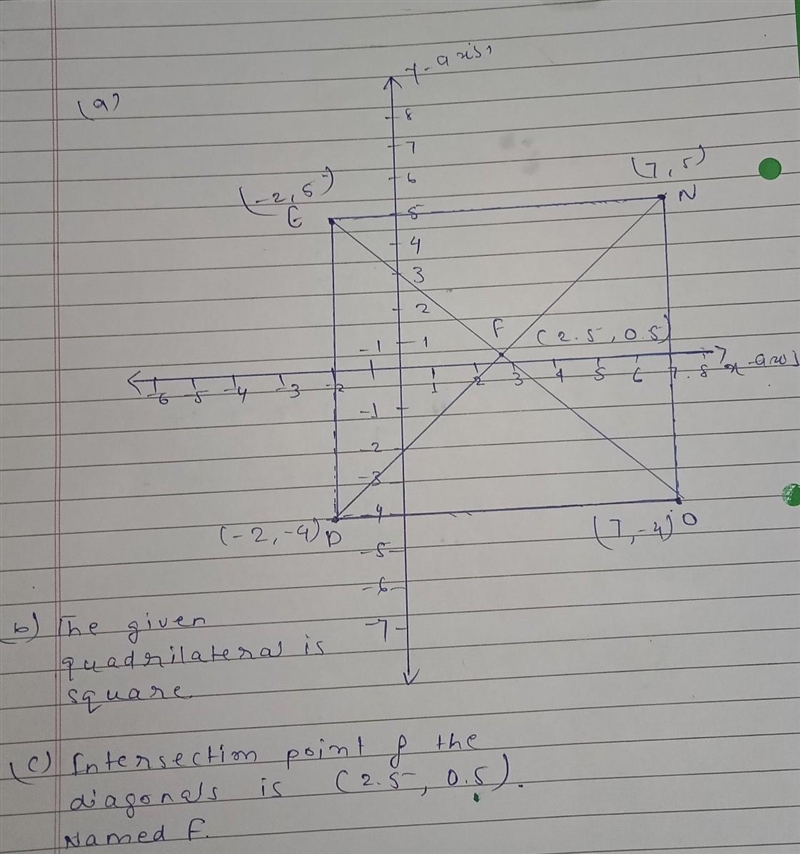 y-axis,
(a)
8
7
6
(-2, 5) (7, 5)
E 5 N
4
3
2
F (2.5, 0.5)
-1 1
-6 -5 -4 -3 -2 1 1 2 3 4 5 6 7 8 x-axis
-1
-2
-3
-4
(-2, -4) D (7, -4) O
-5
-6
-7
b) The given
quadrilateral is
square.
(c) Intersection point of the
diagonals is (2.5, 0.5).
Named F.